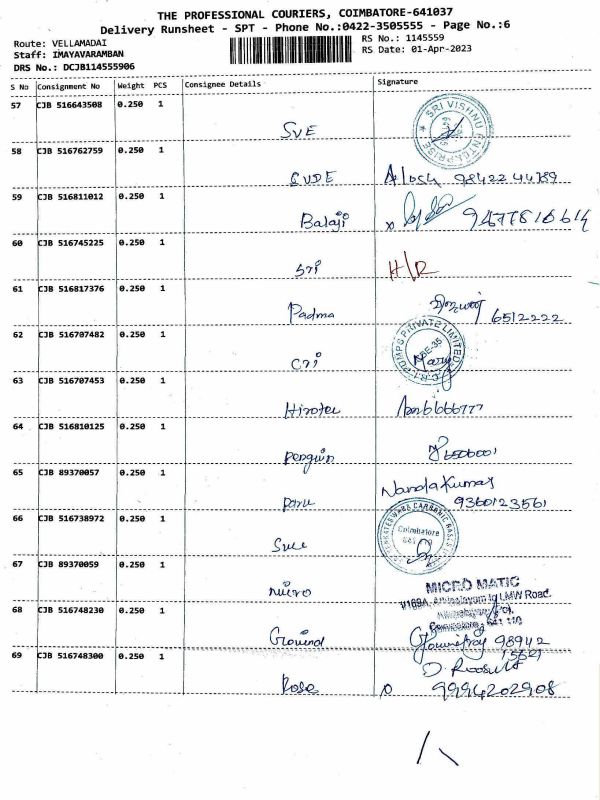 THE PROFESSIONAL COURIERS, COIMBATORE-641037
Delivery Runsheet - SPT - Phone No.:0422-3505555 - Page No.:6
Route: VELLAMADAI
RS No.: 1145559
Staff: IMAYAVARAMBAN
RS Date: 01-Apr-2023
DRS No.: DCJB114555906
S No Consignment No Weight PCS Consignee Details Signature
57 CJB 516643508 0.250 1
SVE
SRI VISHNU ENTERPRISE
58 CJB 516762759 0.250 1
SVDE 98422 44789
59 CJB 516811012 0.250 1
Balaji 9477816614
60 CJB 516745225 0.250 1
Sri H/R
61 CJB 516817376 0.250 1
Padma 6512222
62 CJB 516707482 0.250 1
Cri
PUMPS PRIVATE LIMITED
63 CJB 516707453 0.250 1
Hirotec
64 CJB 516810125 0.250 1
Penguin
65 CJB 89370057 0.250 1
NandaKumar
9360123561
66 CJB 516738972 0.250 1
Coimbatore
67 CJB 89370059 0.250 1
MICRO MATIC
LMW Road.
68 CJB 516748230 0.250 1
Govind 98942
15521
69 CJB 516748300 0.250 1
Rose 9994202908